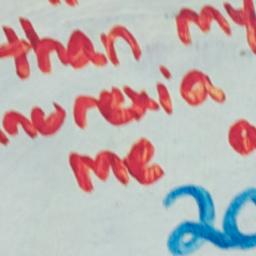 than my
anorexia
me a
20